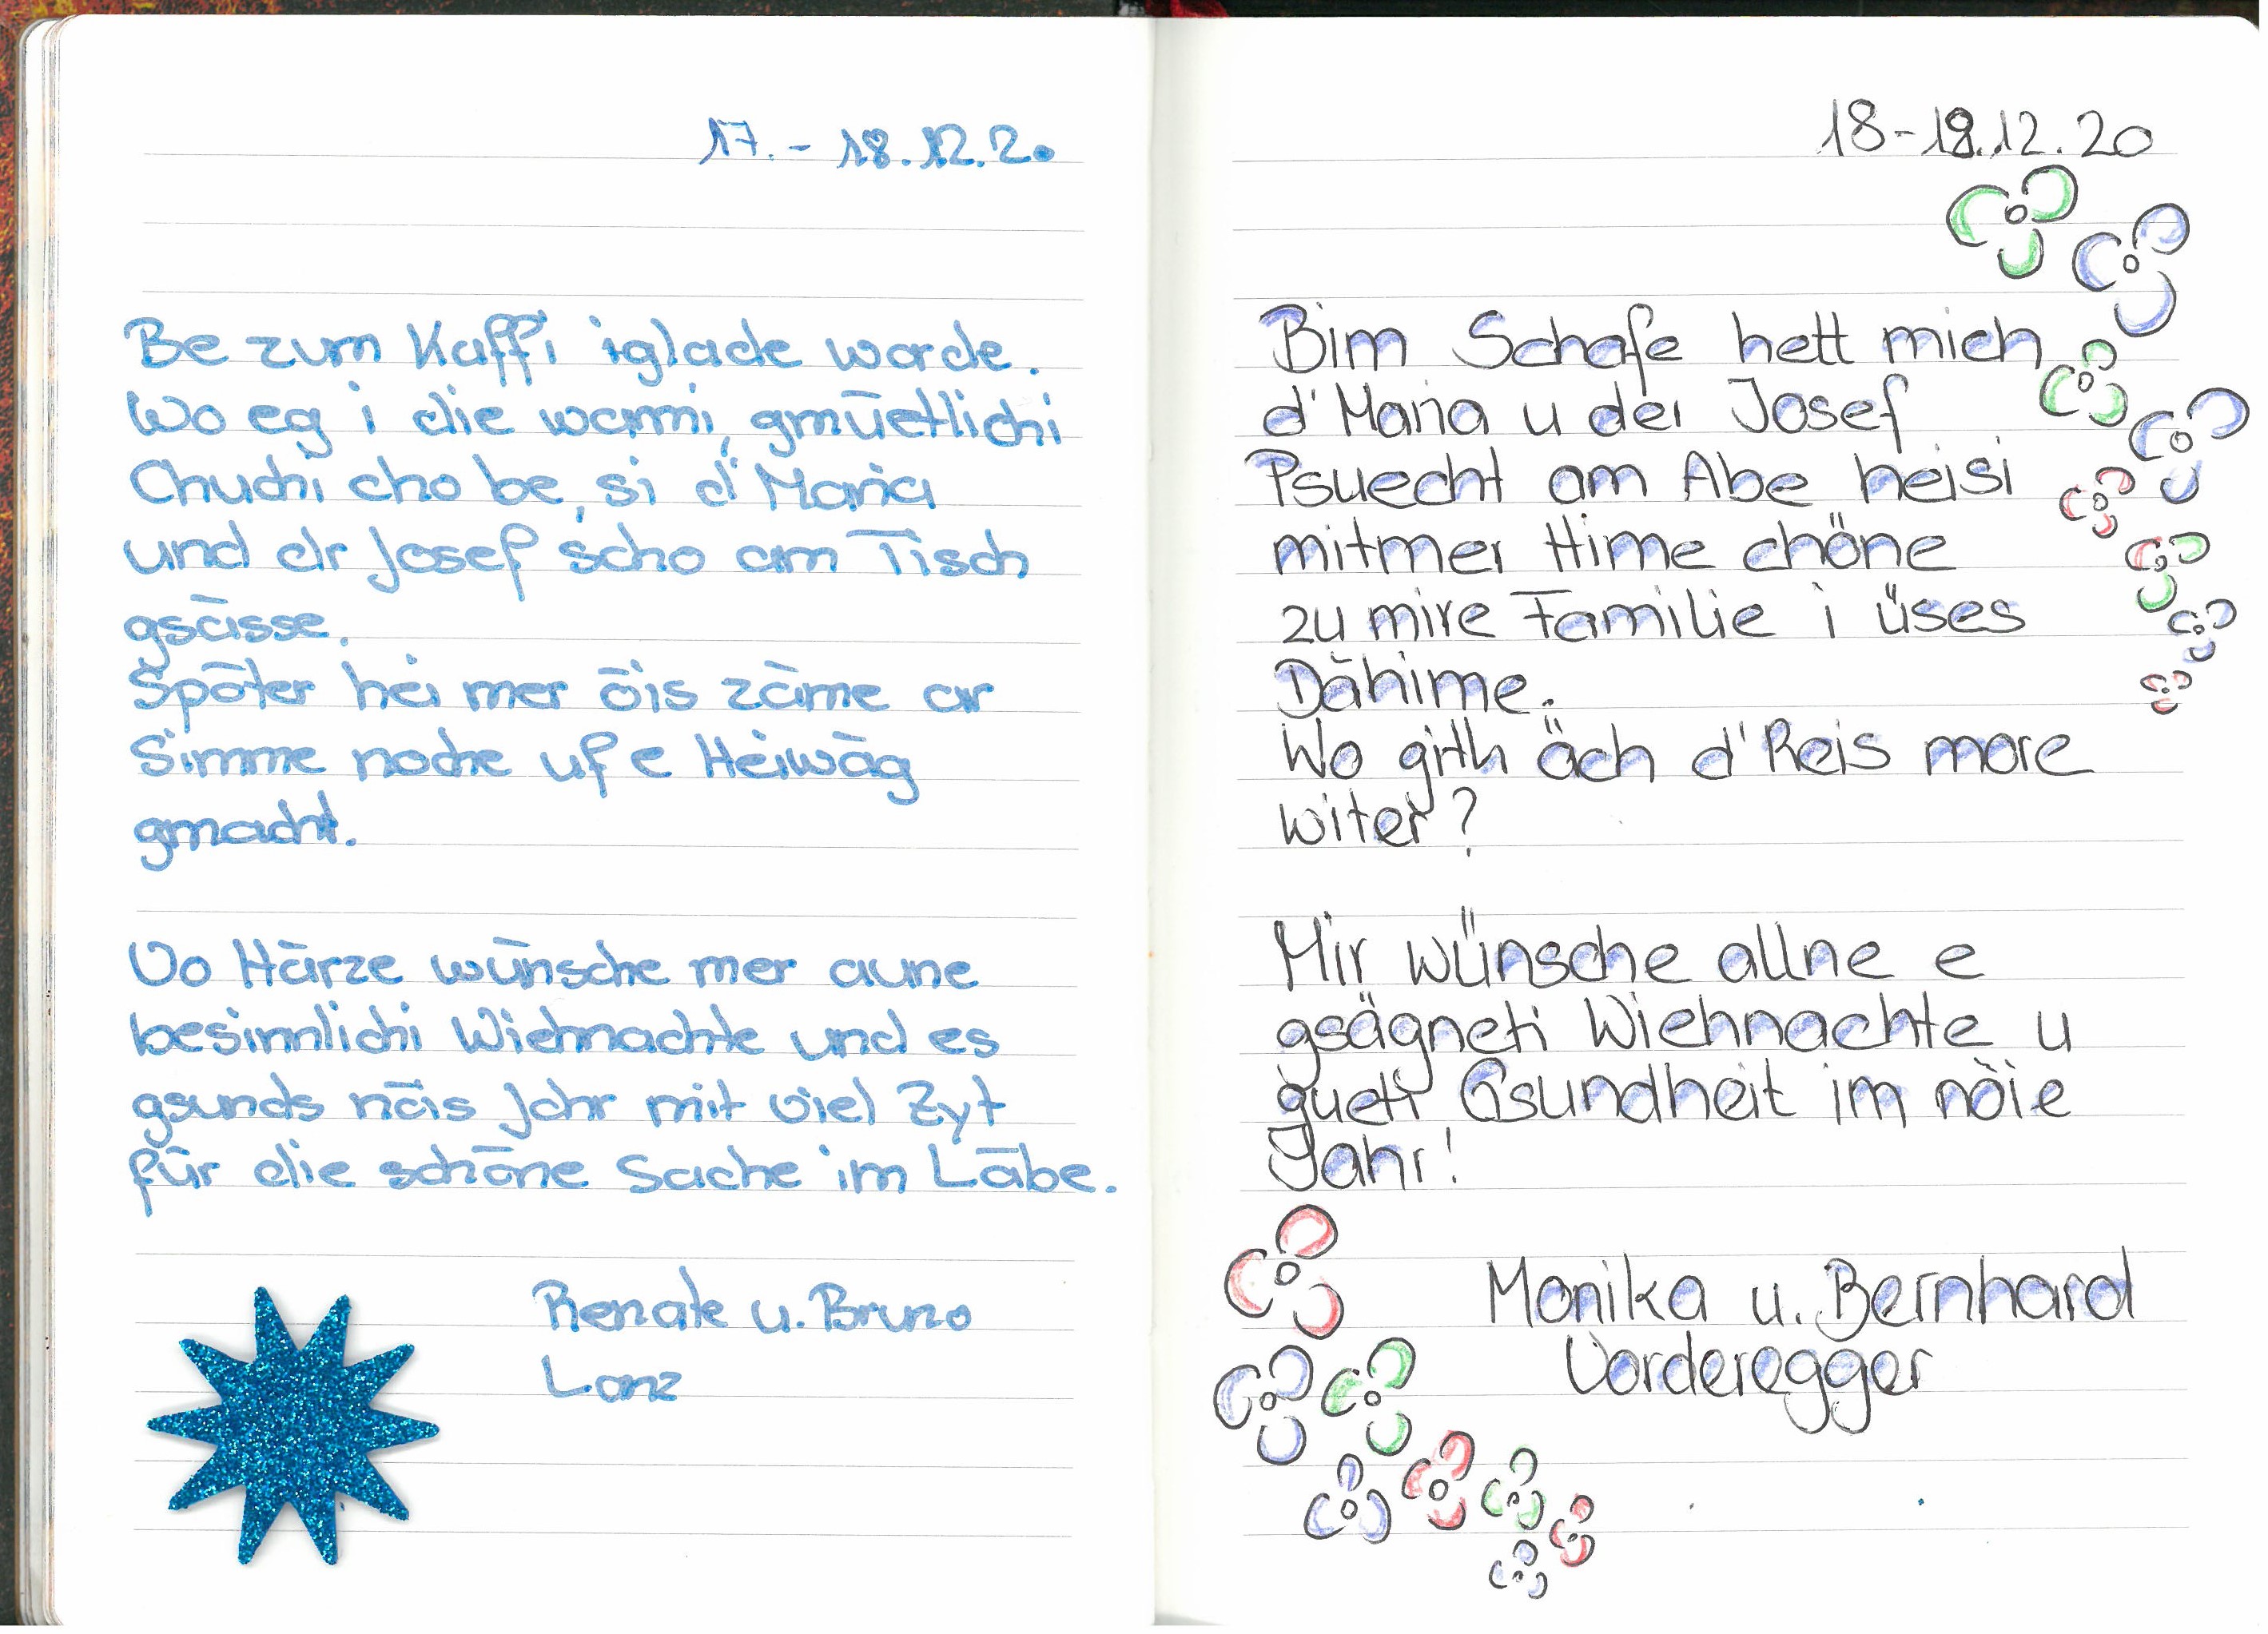 17. - 18.12.20
Be zum Kaffi iglade worde.
Wo eg i die warmi, gmüetlichi
Chuchi cho be, si d'Maria
und dr Josef scho am Tisch
gsässe.
Später hei mer öis zäme ar
Simme noche uf e Heiwäg
gmacht.
Vo Härze wünsche mer aune
besinnlichi Wiehnachte und es
gsunds nöis Johr mit viel Zyt
für die schöne Sache im Läbe.
Renate u. Bruno
Lanz
18-19.12.20
Bim Schafe hett mich
d'Maria u der Josef
Psuecht am Abe heisi
mitmer Hime chöne
zu mire Familie i üses
Dähime.
Wo gith äch d'Reis more
witer?
Mir wünsche allne e
gsägneti Wiehnachte u
gueti Gsundheit im nöie
Jahr!
Monika u. Bernhard
Vorderegger